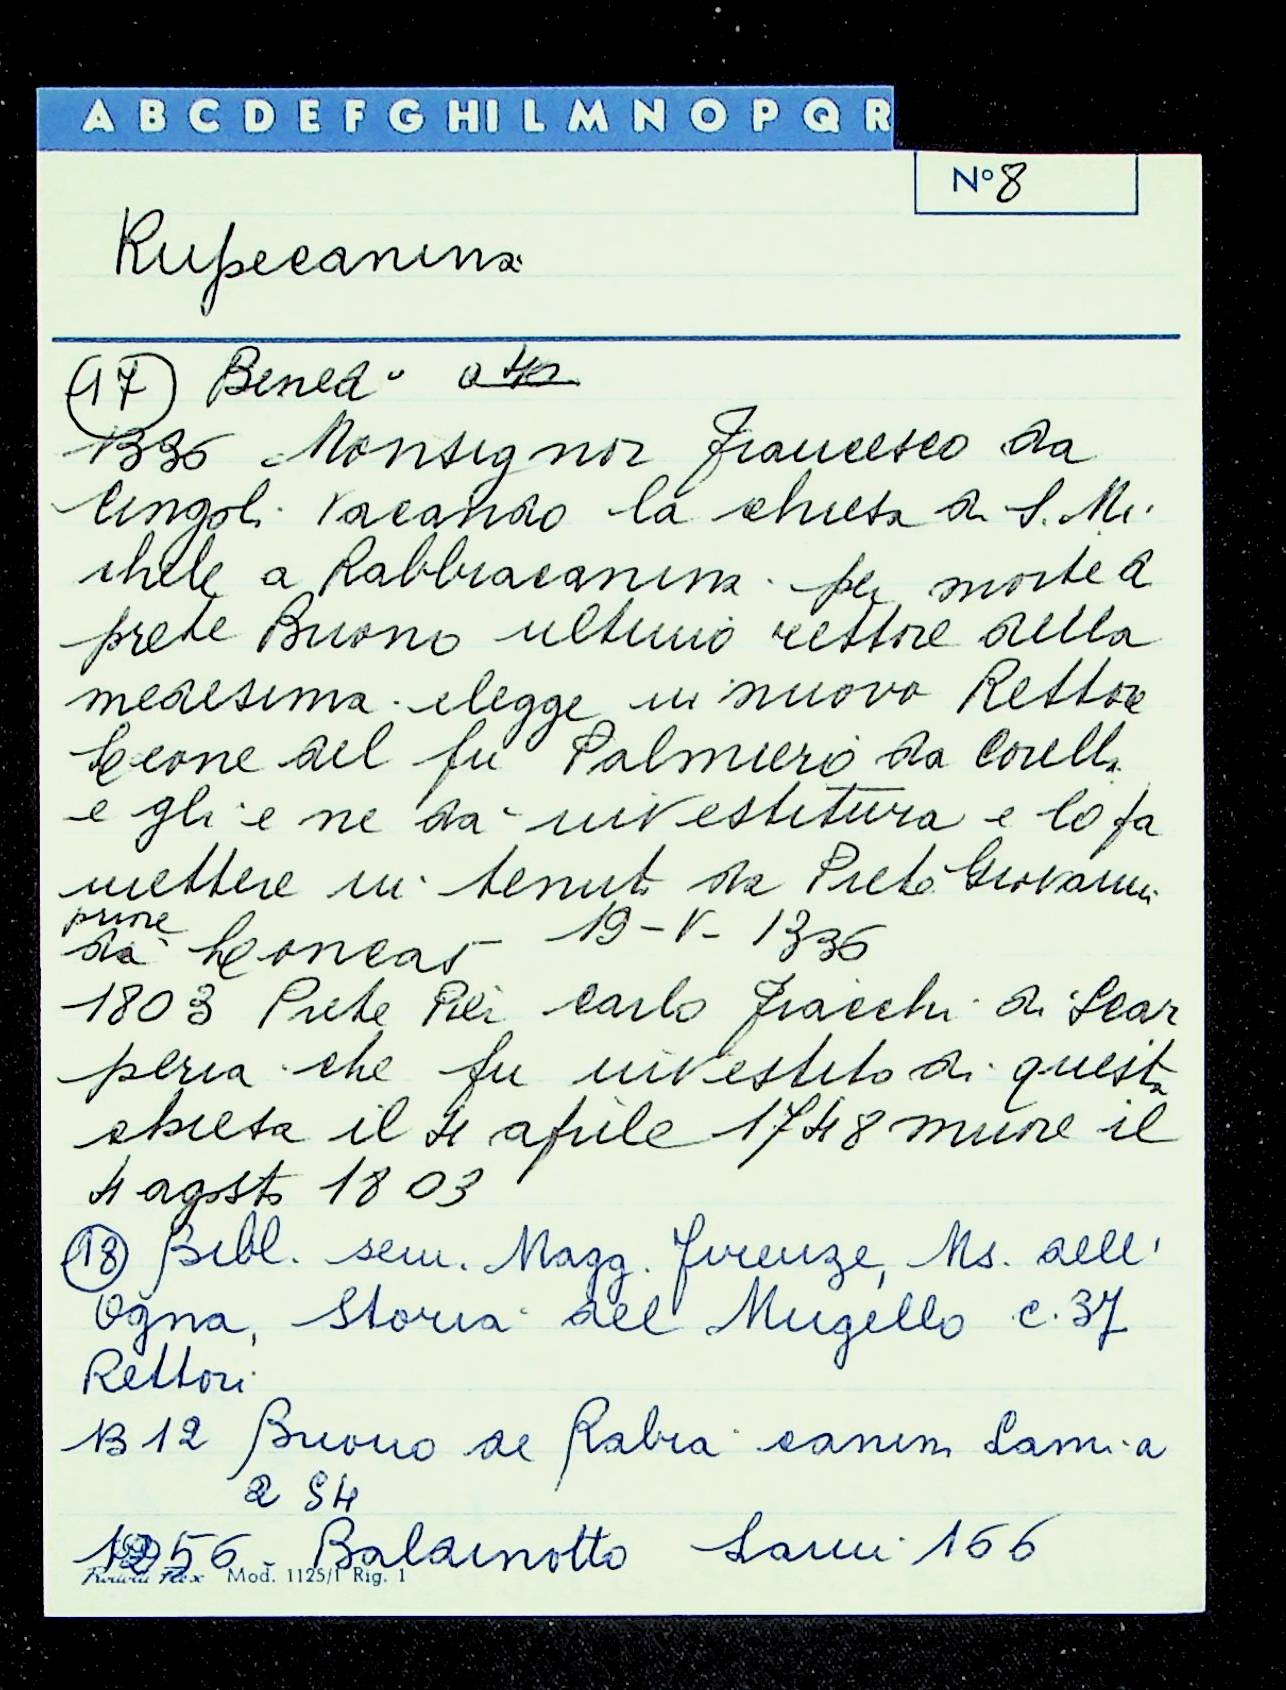 A B C D E F G HI L M N O P Q R
N° 8
Rupecanina
17 Bened°
1336 Monsignor Francesco da
Cingoli vacando la chiesa di S. Mi
chele a Rabbiacanina per morte d
prete Buono ultimo rettore della
medesima elegge in nuovo Rettore
Leone del fu Palmiero da Corella
e gli e ne da investitura e lo fa
mettere in tenuta da Prete Giovanni
priore
da 19-V-1336
1803 Prete Pier Carlo Fracchi di Scar
peria che fu investito di questa
chiesa il 4 aprile 1748 muore il
4 agosto 1803
18 Bibl. sem. Magg. Firenze, Ms. dell'
Ogna, Storia del Mugello c. 37
Rettori
1312 Buono de Rabia canina Lami a
254
56 Baldinotto Lami 166
Mod. 1125/1 Rig. 1